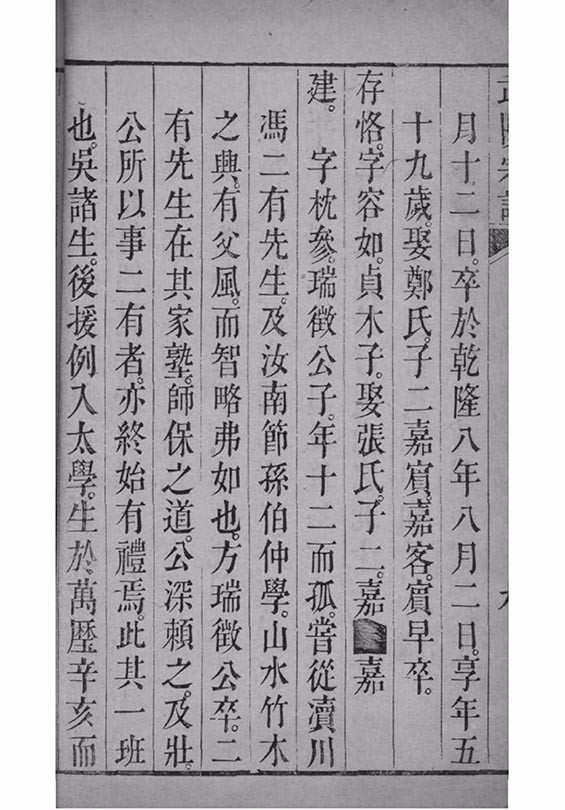 月十二日。卒於乾隆八年八月二日。享年五
十九歲。娶鄭氏。子二嘉賓。嘉客。賓早卒。
存恪。字容如。貞木子。娶張氏。子二。嘉嘉
建。字枕參。瑞徵公子。年十二而孤。嘗從瀆川
馮二有先生。及汝南節孫伯仲學。山水竹木
之興。有父風。而智略弗如也。方瑞徵公卒。二
有先生在其家塾。師保之道。公深賴之。及壯。
公所以事二有者。亦終始有禮焉。此其一班
也。吳諸生。後援例入太學。生於萬曆辛亥而